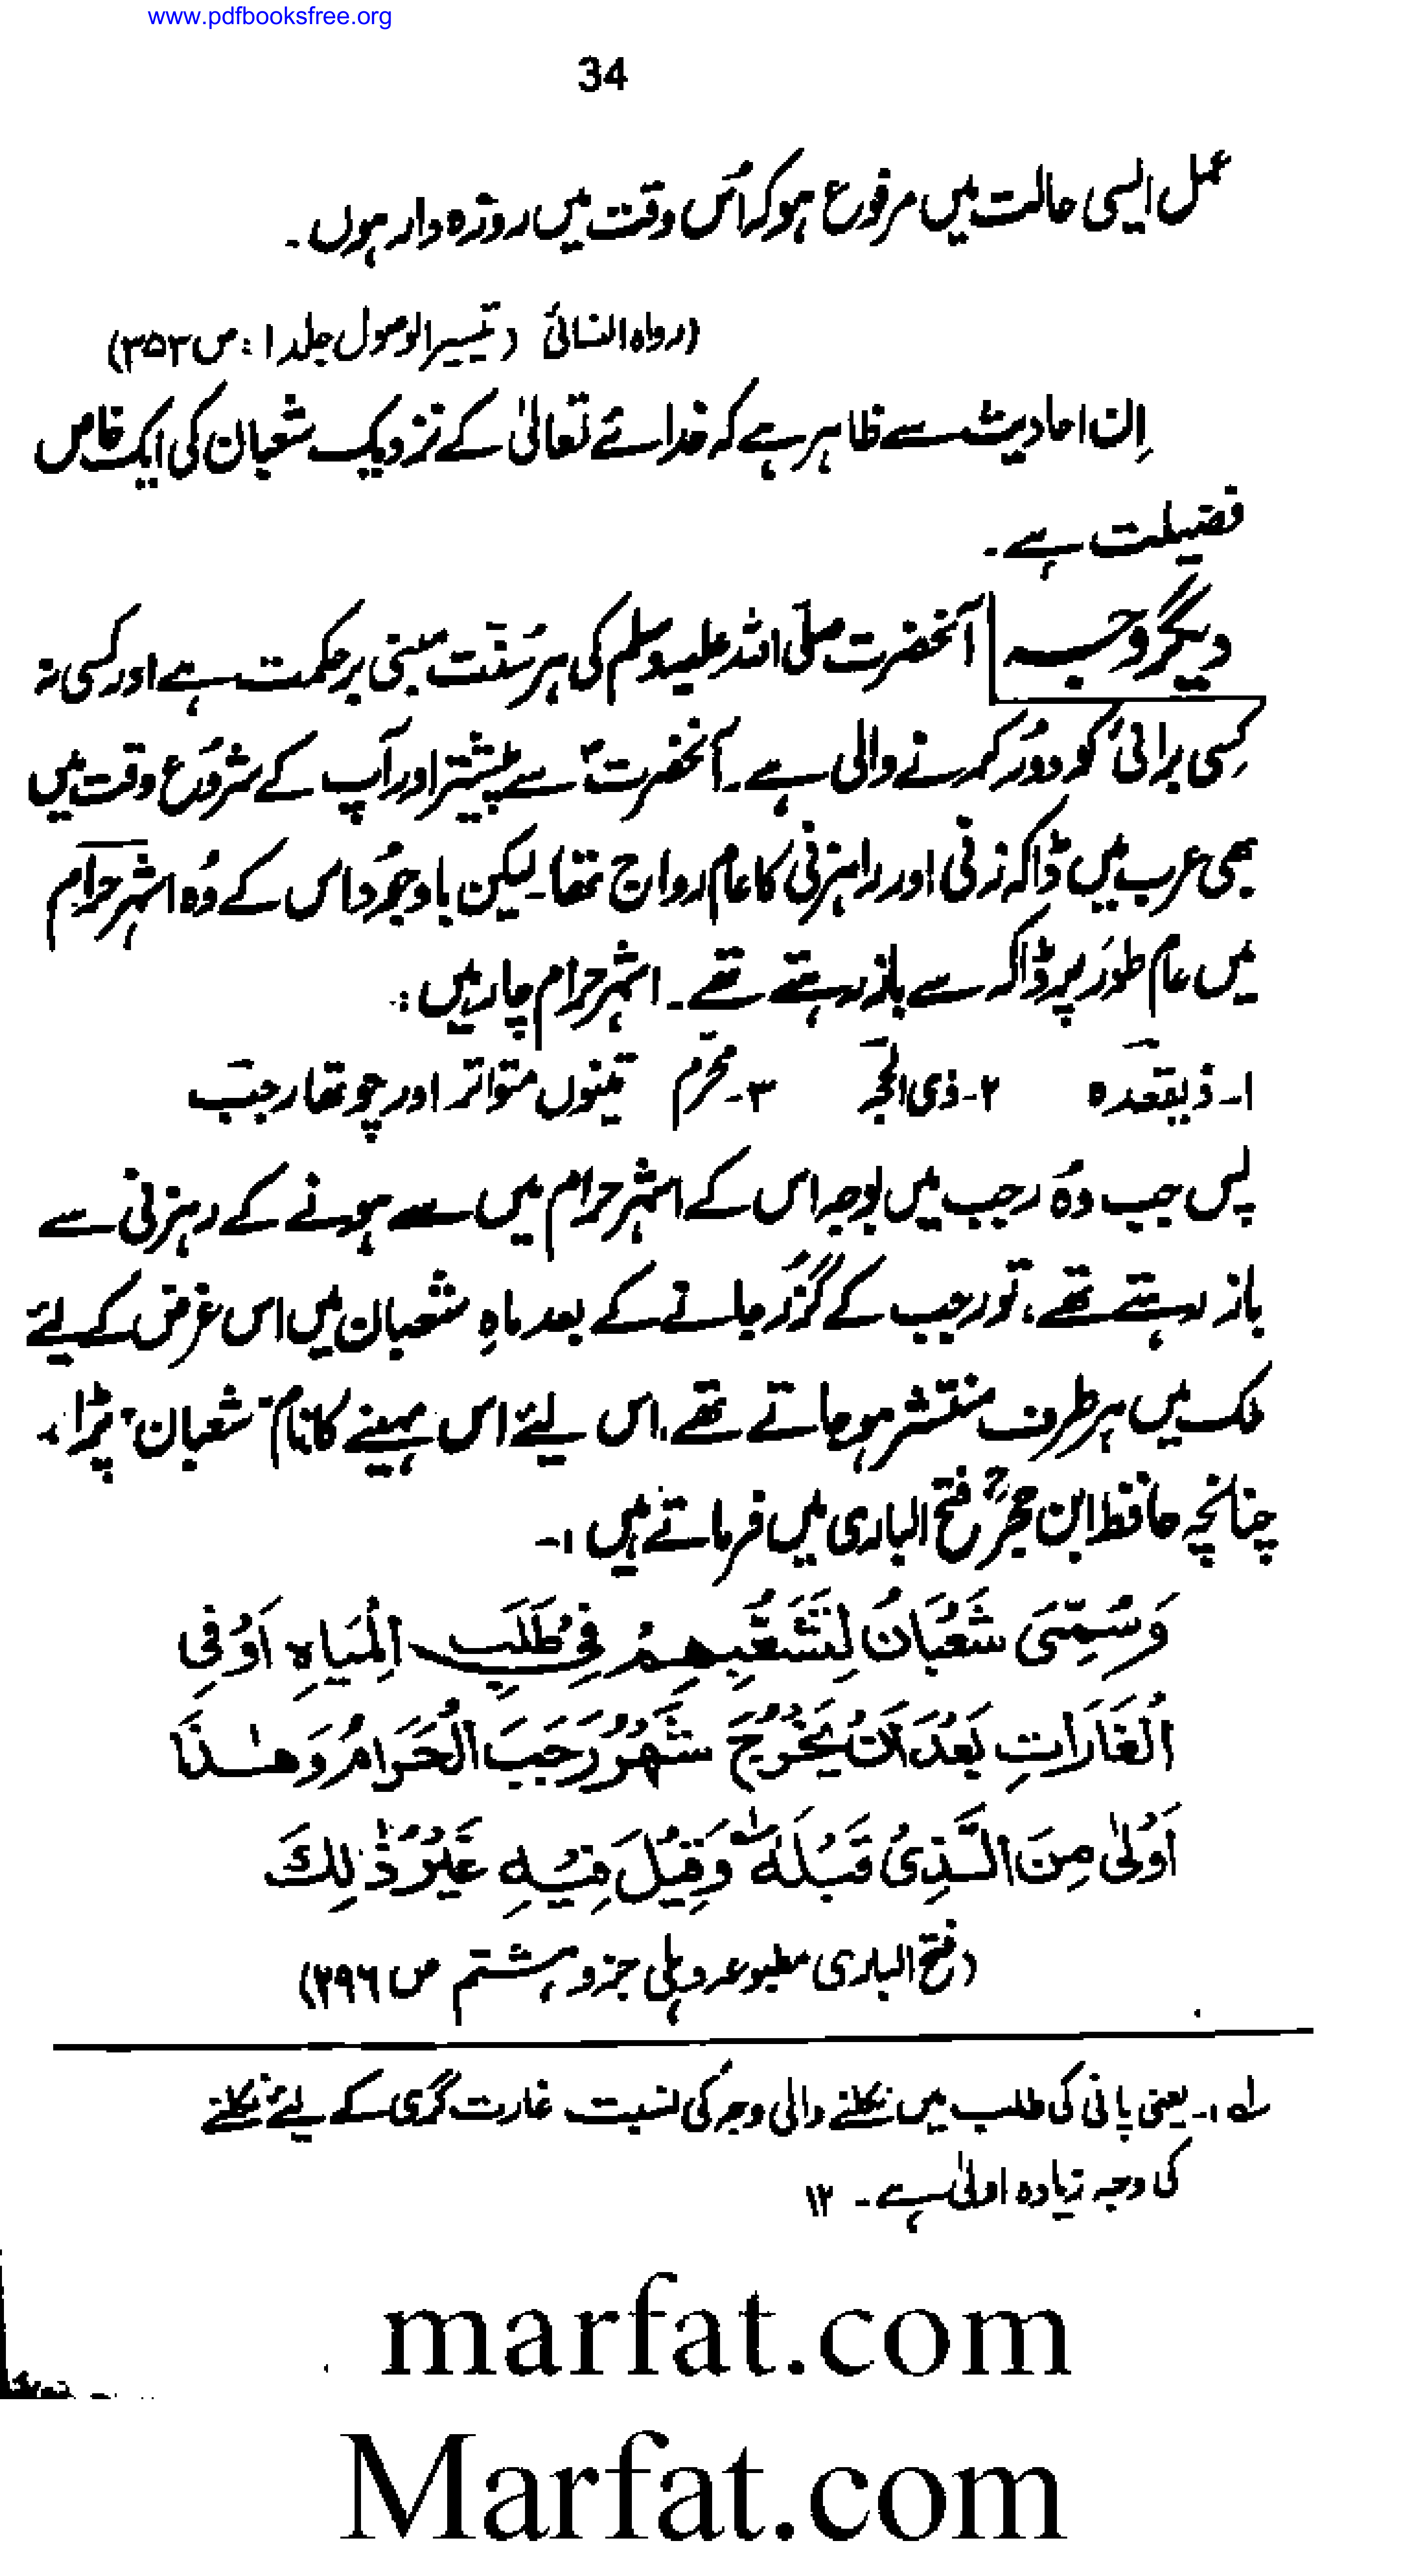 www.pdfbooksfree.org
34
عمل ایسی حالت میں مرفوع ہو کہ اُس وقت میں روزہ دار ہوں۔
(رواہ النسائی (تیسیر الوصول جلد ا : ص ۳۵۳)
اِن احادیث سے ظاہر ہے کہ خدائے تعالیٰ کے نزدیک شعبان کی ایک خاص
فضیلت ہے۔
دیگر وجہ آنحضرت صلّی اللہ علیہ وسلم کی ہر سُنّت مبنی بر حکمت ہے اور کسی نہ
کِسی برائی کو دُور کرنے والی ہے۔ آنحضرتؐ سے پیشتر اور آپ کے شروع وقت میں
بھی عرب میں ڈاکہ زنی اور راہزنی کا عام رواج تھا۔ لیکن باوجود اس کے وُہ اشہر حرام
میں عام طور پر ڈاکہ سے باز رہتے تھے۔ اشہر حرام چار ہیں :۔
۱۔ ذیقعدہ ۲۔ ذی الحجہ ۳۔ محرّم تینوں متواتر اور چوتھا رجب
پس جب وُہ رجب میں بوجہ اس کے اشہر حرام میں سے ہونے کے رہزنی سے
باز رہتے تھے، تو رجب کے گزُر جانے کے بعد ماہِ شعبان میں اس غرض کے لئے
ملک میں ہر طرف منتشر ہو جاتے تھے۔ اس لئے اس مہینے کا نام "شعبان" پڑا،
چنانچہ حافظ ابن حجرؒ فتح الباری میں فرماتے ہیں :۔
وَسُمِّیَ شَعْبَانُ لِتَشَعُّبِهِمْ فِیْ طَلَبِ الْمِیَاہِ اَوْ فِی
الْغَارَاتِ بَعْدَ اَنْ یَخْرُجَ شَهْرُ رَجَبَ الْحَرَامُ وَهٰذَا
اَوْلٰی مِنَ الَّذِیْ قَبْلَهٗ ؎ وَقِیْلَ فِیْهِ غَیْرُ ذٰلِكَ
(فتح الباری مطبوعہ دہلی جزو ہشتم ص ۲۹۶)
؎ ۱۔ یعنی پانی کی طلب میں نکلنے والی وجہ کی نسبت غارت گری کے لئے نکلنے
کی وجہ زیادہ اولیٰ ہے۔ ۱۲
marfat.com
Marfat.com